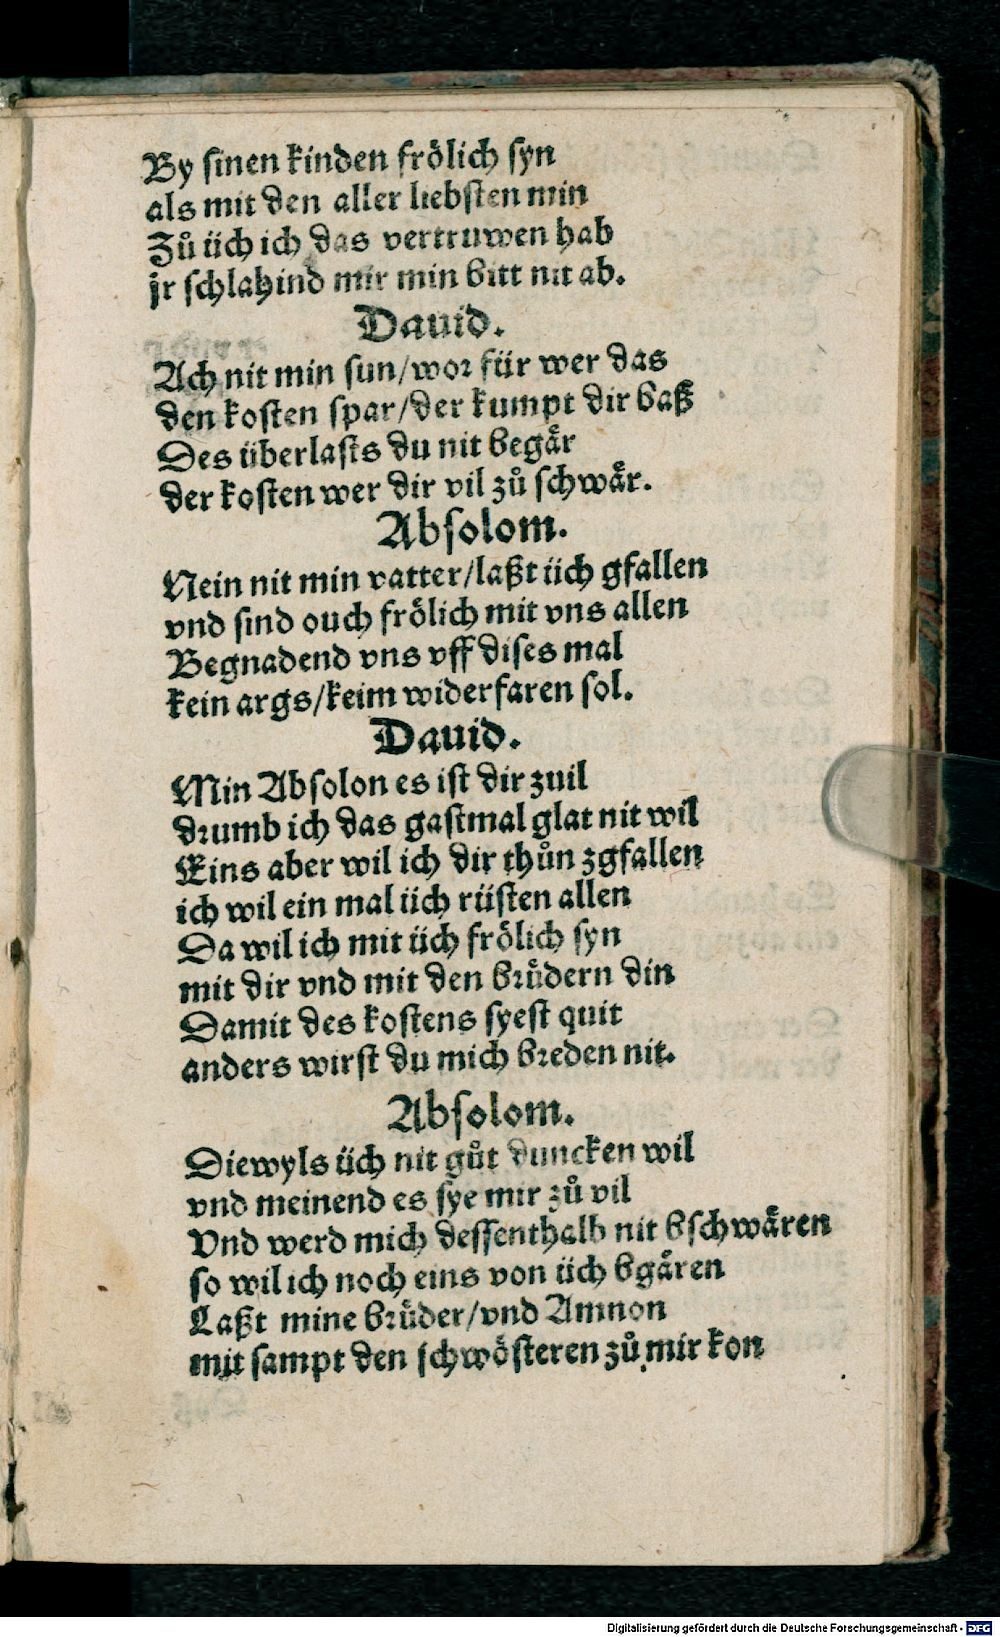 By sinen kinden frölich syn
als mit den aller liebsten min
Zů üch ich das vertruwen hab
jr schlahind mir min bitt nit ab.
Dauid.
Ach nit min sun/wor für wer das
den kosten spar/der kumpt dir baß
Des überlasts du nit begår
der kosten wer dir vil zů schwår.
Absolom.
Nein nit min vatter/laßt üch gfallen
vnd sind ouch frölich mit vns allen
Begnadend vns vff dises mal
kein args/keim widerfaren sol.
Dauid.
Min Absolon es ist dir zuil
drumb ich das gastmal glat nit wil
Eins aber wil ich dir thůn zgfallen
ich wil ein mal üch rüsten allen
Da wil ich mit üch frölich syn
mit dir vnd mit den brüdern din
Damit des kostens syest quit
anders wirst du mich breden nit.
Absolom.
Diewyls üch nit gůt duncken wil
vnd meinend es sye mir zů vil
Vnd werd mich dessenthalb nit bschwåren
so wil ich noch eins von üch bgåren
Laßt mine brüder/vnd Amnon
mit sampt den schwösteren zů mir kon
Digitalisierung gefördert durch die Deutsche Forschungsgemeinschaft - DFG